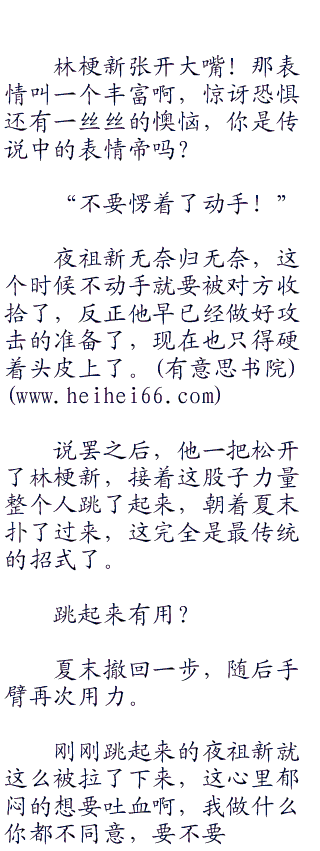 林梗新张开大嘴！那表
情叫一个丰富啊，惊讶恐惧
还有一丝丝的懊恼，你是传
说中的表情帝吗？
“不要愣着了动手！”
夜祖新无奈归无奈，这
个时候不动手就要被对方收
拾了，反正他早已经做好攻
击的准备了，现在也只得硬
着头皮上了。(有意思书院)
(www.heihei66.com)
说罢之后，他一把松开
了林梗新，接着这股子力量
整个人跳了起来，朝着夏末
扑了过来，这完全是最传统
的招式了。
跳起来有用？
夏末撤回一步，随后手
臂再次用力。
刚刚跳起来的夜祖新就
这么被拉了下来，这心里郁
闷的想要吐血啊，我做什么
你都不同意，要不要